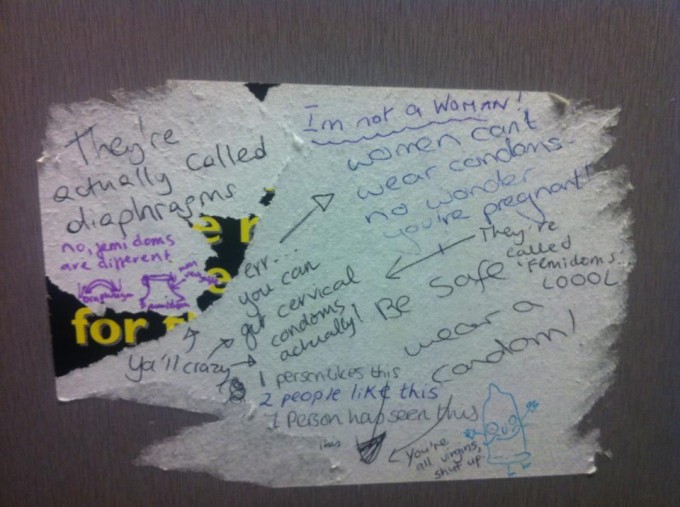 They're
actually called
diaphragms
no, femidoms
are different
Diaphragm
femidom
e r
e
for
I'm not a WOMAN!
women can't
wear condoms.
no wonder
you're pregnant!
err...
you can
get cervical
condoms
actually!
They're
called
Femidoms..
LOOOL
Be safe
wear a
condom!
Ya'll crazy
1 person likes this
2 people like this
1 Person has seen this
You're
all virgins,
shut up.